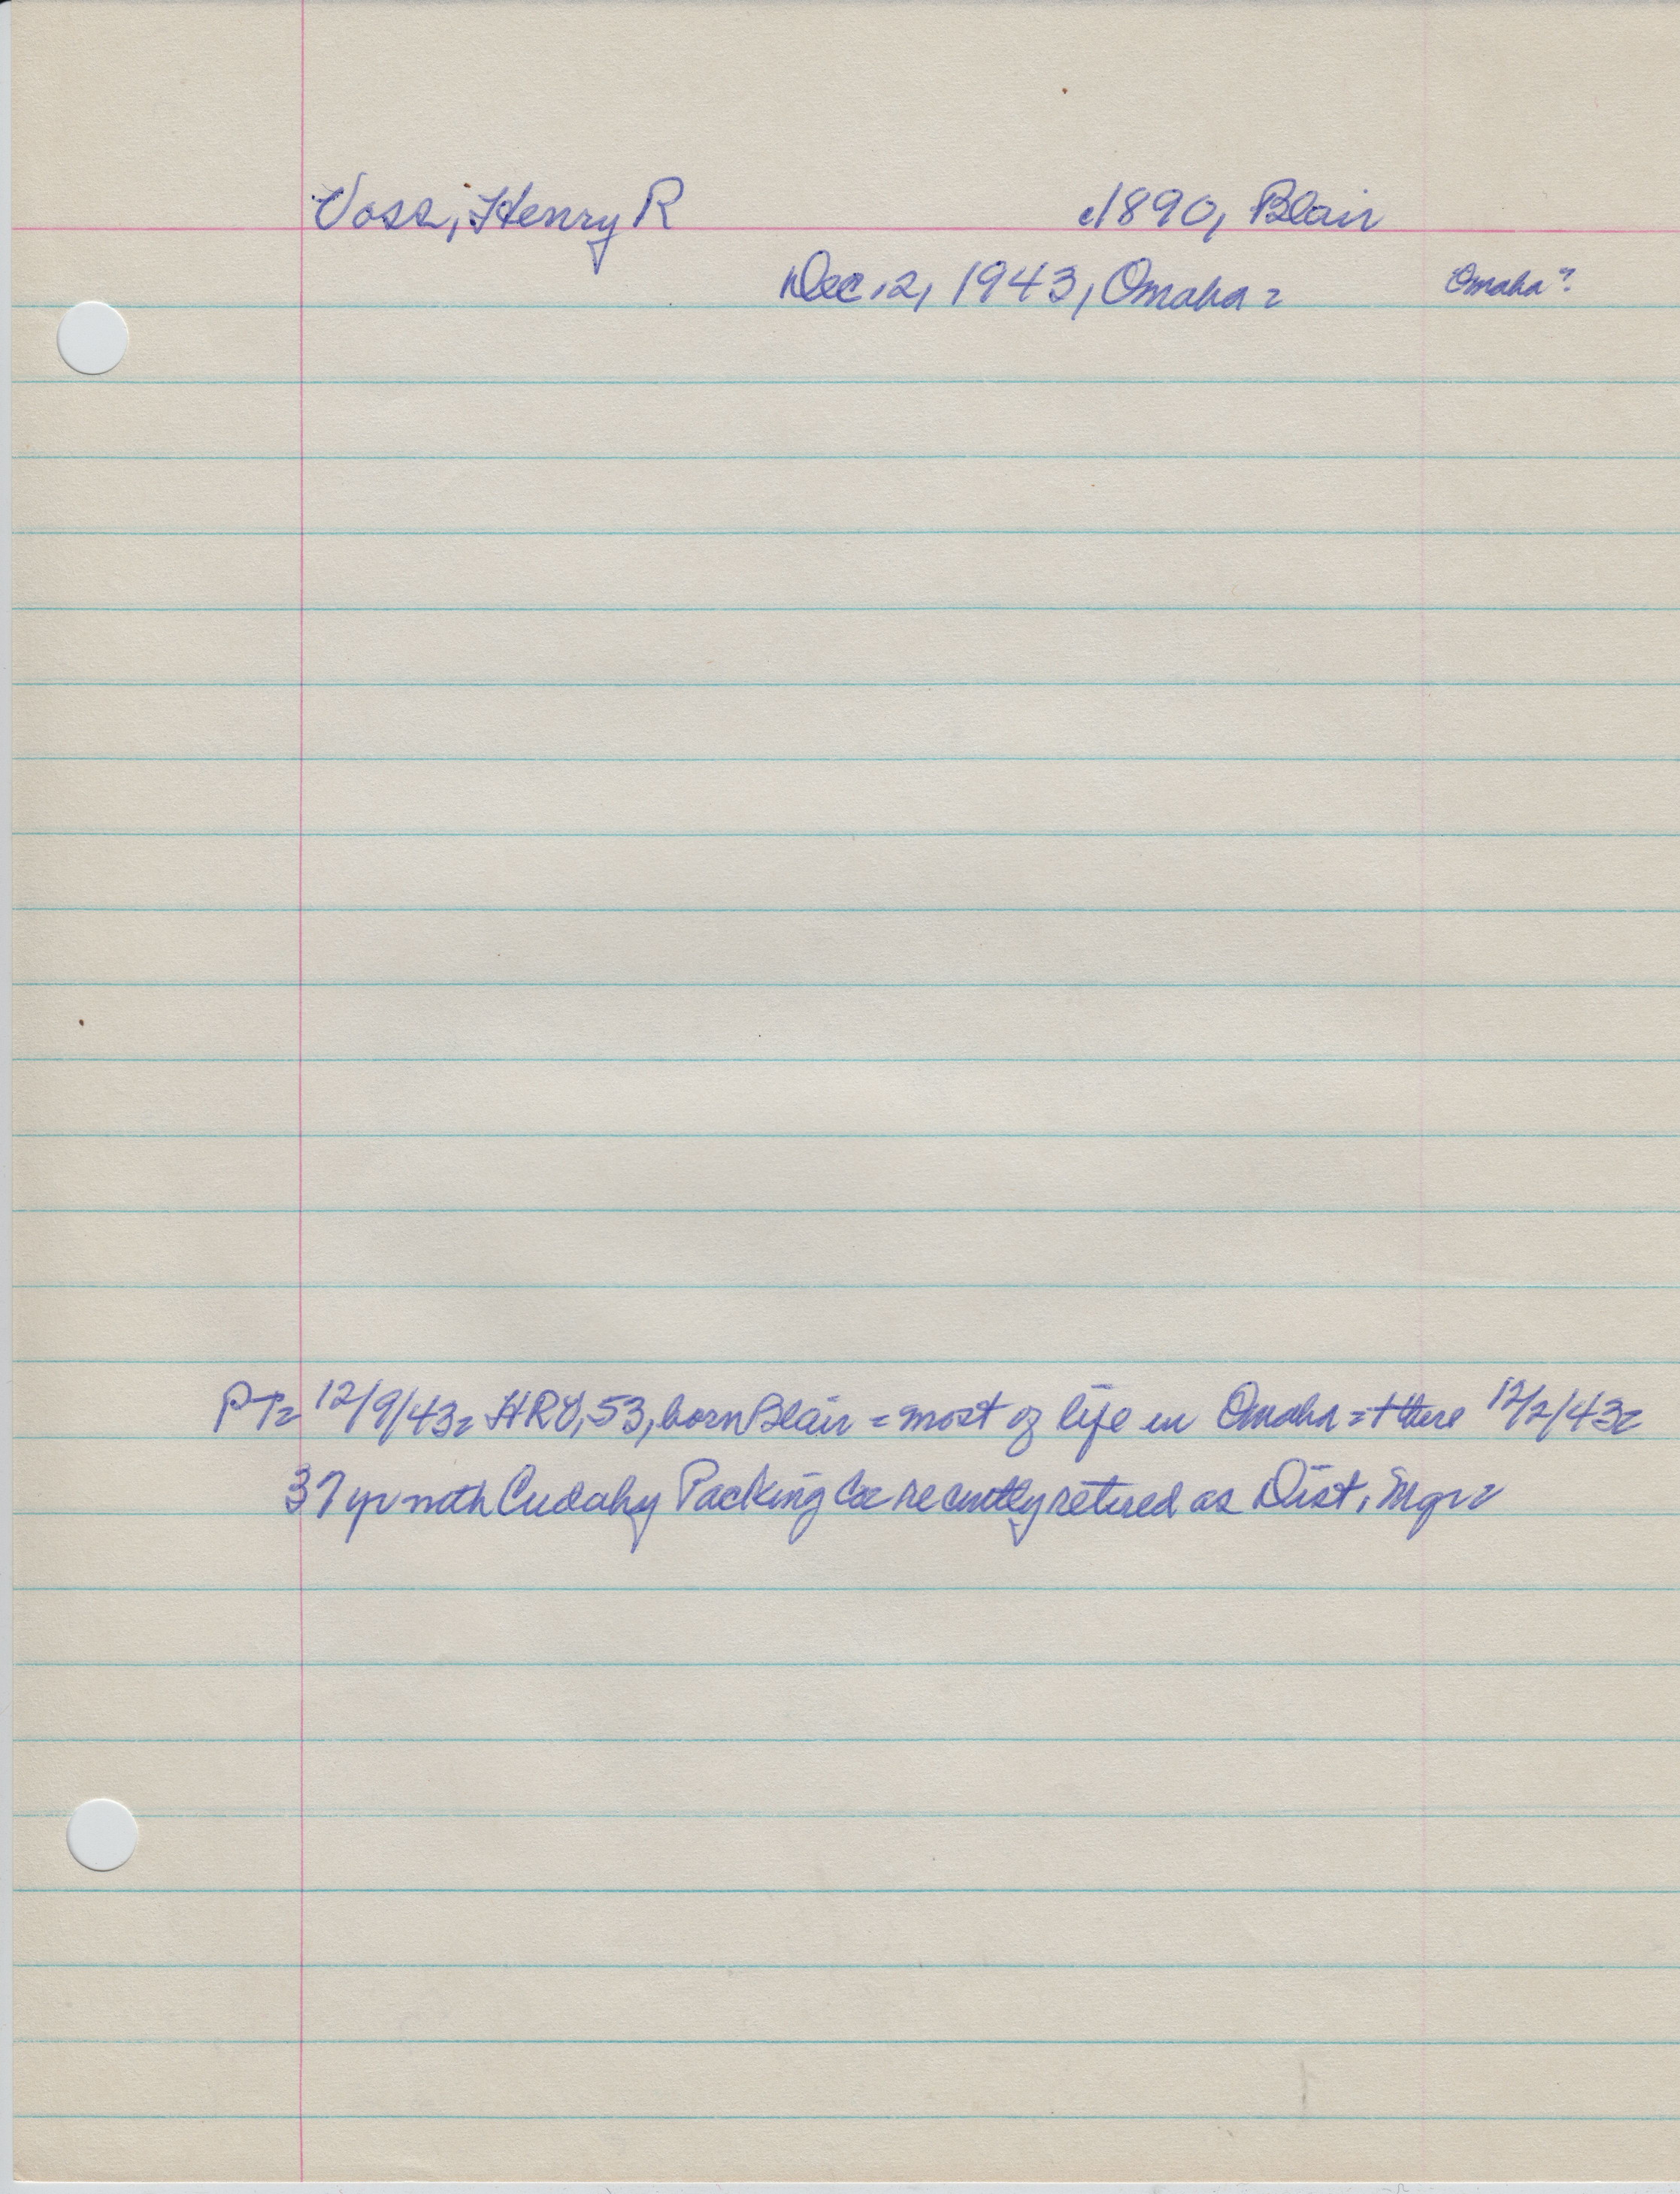 Voss, Henry R c1890, Blair
Dec. 2, 1943, Omaha = Omaha?
PT= 12/9/43= HRV, 53, born Blair = most of life in Omaha = + there 12/2/43=
37 yr with Cudahy Packing Co recently retired as Dist. Mgr=